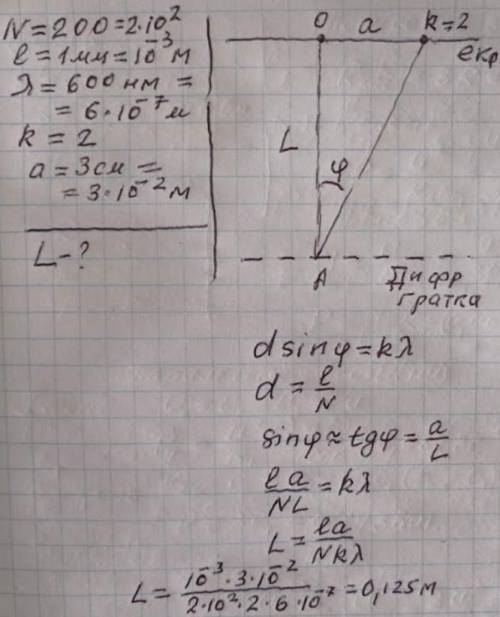 N=200=2·10²
l=1мм=10⁻³м
λ=600нм=
=6·10⁻⁷м
k=2
a=3см=
=3·10⁻²м
L-?
O a k=2
екр
L
φ
A Дифр
гратка
d sinφ=kλ
d=l/N
sinφ≈tgφ=a/L
la/NL=kλ
L=la/Nkλ
L=10⁻³·3·10⁻²/2·10²·2·6·10⁻⁷=0,125м